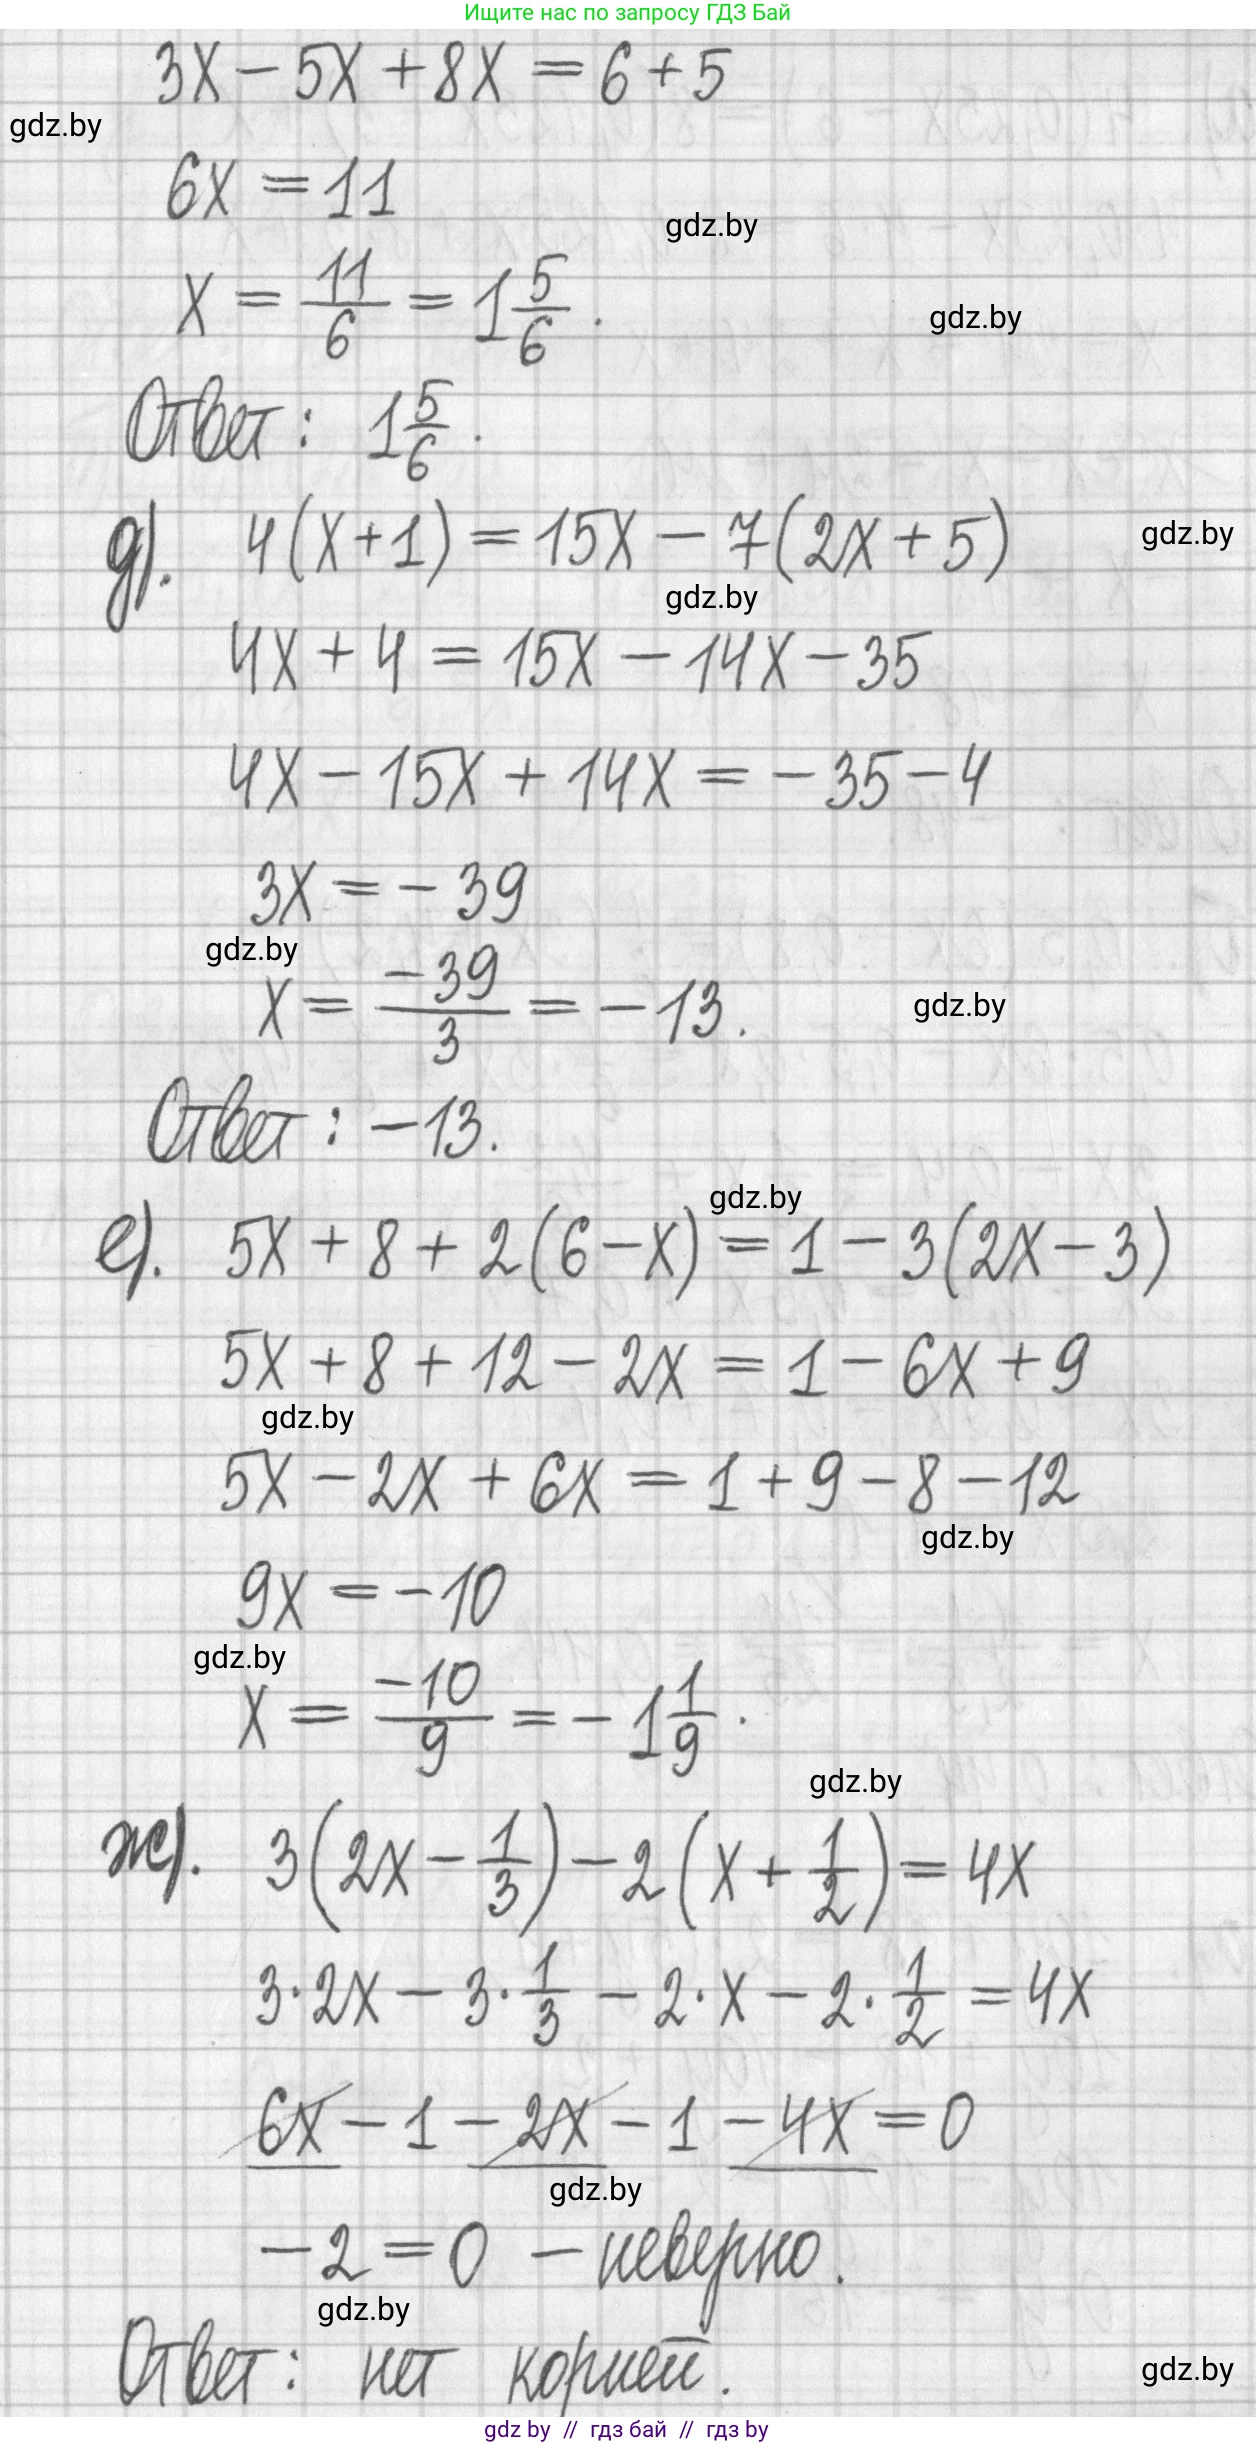 Ищите нас по запросу ГДЗ Бай
3x - 5x + 8x = 6 + 5
gdz.by
6x = 11
gdz.by
x = 11/6 = 1 5/6.
gdz.by
Ответ: 1 5/6.
д). 4(x+1) = 15x - 7(2x+5)
gdz.by
gdz.by
4x + 4 = 15x - 14x - 35
4x - 15x + 14x = -35 - 4
3x = -39
gdz.by
x = -39/3 = -13.
gdz.by
Ответ: -13.
gdz.by
е). 5x + 8 + 2(6-x) = 1 - 3(2x-3)
5x + 8 + 12 - 2x = 1 - 6x + 9
gdz.by
5x - 2x + 6x = 1 + 9 - 8 - 12
gdz.by
9x = -10
gdz.by
x = -10/9 = -1 1/9.
gdz.by
ж). 3(2x - 1/3) - 2(x + 1/2) = 4x
3·2x - 3·1/3 - 2·x - 2·1/2 = 4x
6x - 1 - 2x - 1 - 4x = 0
gdz.by
-2 = 0 - неверно.
gdz.by
Ответ: нет корней.
gdz.by
gdz by // гдз бай // гдз by